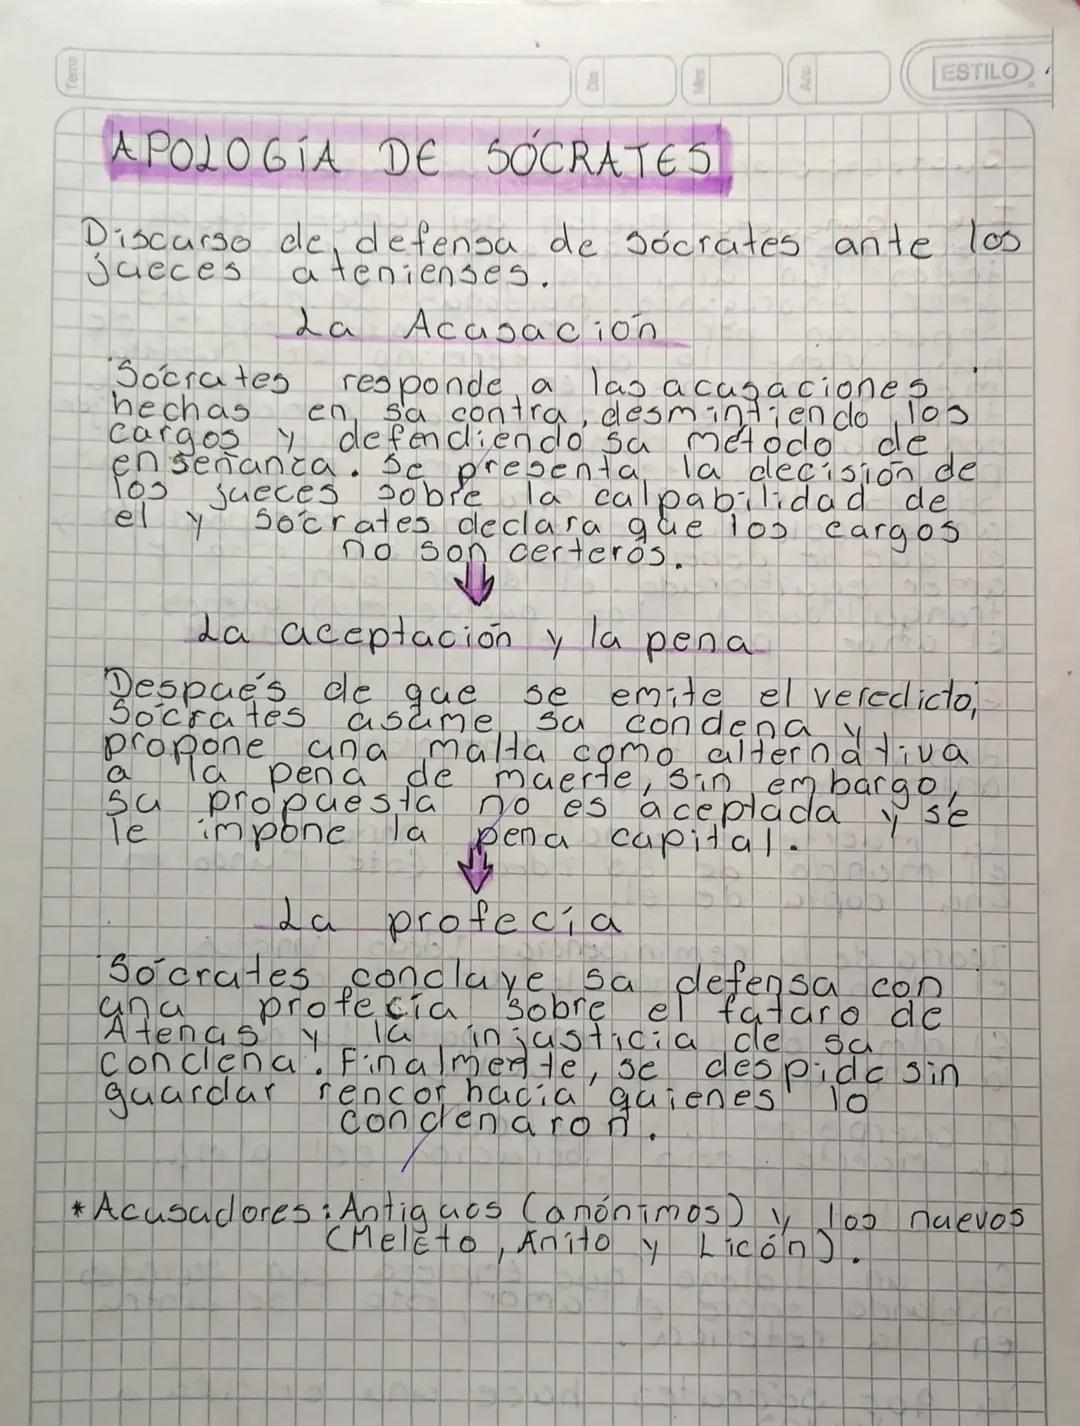 Tema
Día
Mes
Año
ESTILO
APOLOGÍA DE SÓCRATES
Discurso de defensa de sócrates ante los
jueces atenienses.
La Acusación
Sócrates responde a las acusaciones
hechas en su contra, desmintiendo los
cargos y defendiendo su método de
enseñanza. Se presenta la decisión de
los jueces sobre la culpabilidad de
el y Sócrates declara que los cargos
no son certeros.
La aceptación y la pena
Después de que se emite el veredicto,
Sócrates asume su condena y
propone una multa como alternativa
a la pena de muerte, sin embargo,
su propuesta no es aceptada y se
le impone la pena capital.
La profecía
Sócrates concluye su defensa con
una profecía sobre el futuro de
Atenas y la injusticia de su
condena. Finalmente, se despide sin
guardar rencor hacia quienes lo
condenaron.
* Acusadores: Antiguos (anónimos) y los nuevos
(Meleto, Anito y Licón).